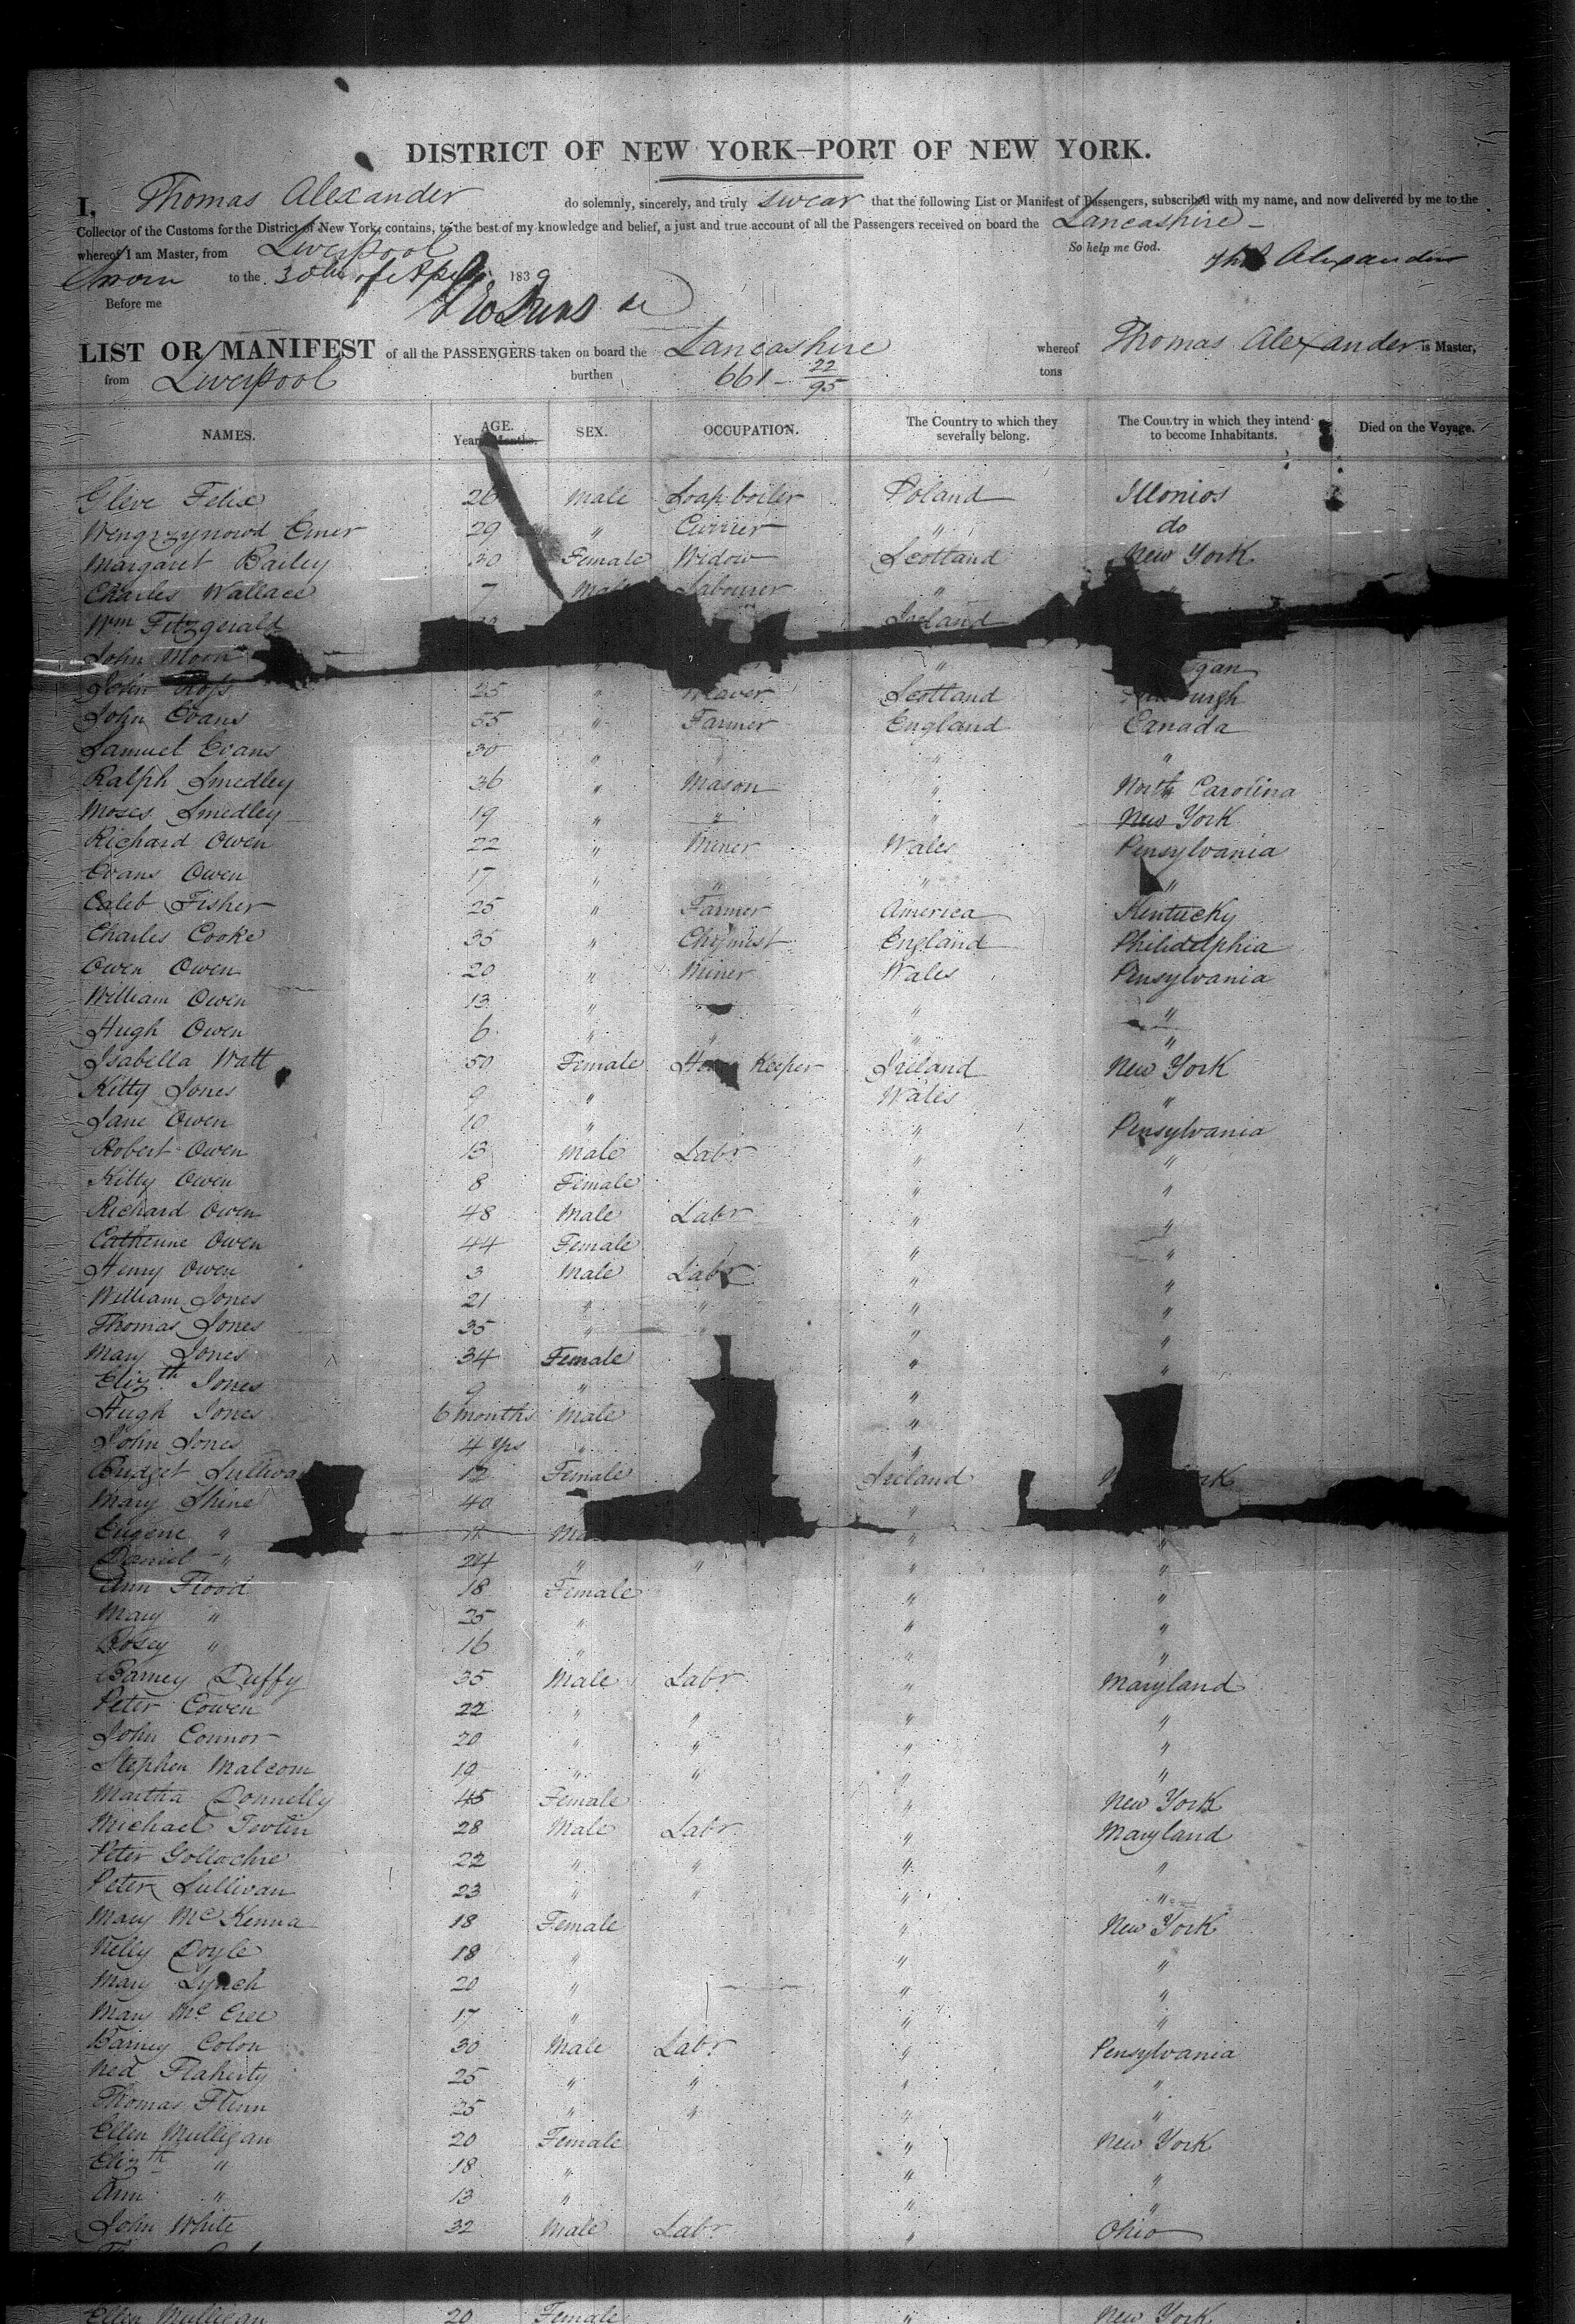 DISTRICT OF NEW YORK–PORT OF NEW YORK.
I, Thomas Alexander do solemnly, sincerely, and truly swear that the following List or Manifest of Passengers, subscribed with my name, and now delivered by me to the
Collector of the Customs for the District of New York, contains, to the best of my knowledge and belief, a just and true account of all the Passengers received on board the Lancashire
whereof I am Master, from Liverpool So help me God.
Sworn to the 30th of April 1839 Thos Alexander
Before me
LIST OR MANIFEST of all the PASSENGERS taken on board the Lancashire whereof Thomas Alexander is Master,
from Liverpool burthen 661 – 22/95 tons
NAMES. AGE. Years Months. SEX. OCCUPATION. The Country to which they severally belong. The Country in which they intend to become Inhabitants. Died on the Voyage.
Felix 26 Male Soap boiler Poland Illonios
29 " Currier " do
Margaret Bailey 30 Female Widow Scotland New York
Charles Wallace 7 Male Labourer "
Wm Fitzgerald Ireland
John Moon " "
John Ross 25 " Weaver Scotland
John Evans 55 " Farmer England Canada
Samuel Evans 30 " " " "
Ralph Smedley 36 " Mason " North Carolina
Moses Smedley 19 " " " New York
Richard Owen 22 " Miner Wales Pensylvania
Evans Owen 17 " " " "
Caleb Fisher 25 " Farmer America Kentucky
Charles Cooke 35 " Chymist England Philidelphia
Owen Owen 20 " Miner Wales Pensylvania
William Owen 13 " " "
Hugh Owen 6 " " " "
Isabella Watt 50 Female Keeper Ireland New York
Kitty Jones 9 " Wales "
Jane Owen 10 " " Pensylvania
Robert Owen 13 Male Labr " "
Kitty Owen 8 Female " "
Richard Owen 48 Male Labr " "
Catherine Owen 44 Female " "
Henry Owen 3 Male Labr " "
William Jones 21 " " " "
Thomas Jones 35 " " " "
Mary Jones 34 Female " "
Elizth Jones 9 " "
Hugh Jones 6 months Male "
John Jones 4 yrs " "
Bridget Sullivan 12 Female Ireland
Mary Shine 40 "
Eugene " " "
Daniel " 24 " " " "
Ann Flood 18 Female " "
Mary " 25 " " "
Rosey " 16 " " "
Barney Duffy 35 Male Labr " Maryland
Peter Cowen 22 " " " "
John Connor 20 " " " "
Stephen Malcom 19 " " " "
Martha Donnelly 45 Female " New York
Michael 28 Male Labr " Maryland
Peter 22 " " " "
Peter Sullivan 23 " " " "
Mary McKenna 18 Female " New York
Nelly Doyle 18 " " "
Mary Lynch 20 " " "
Mary 17 " " "
Barney Colon 30 Male Labr " Pensylvania
Ned Flaherty 25 " " " "
Thomas Flinn 25 " " " "
Ellen Mulligan 20 Female " New York
Elizth " 18 " " "
Ann " 13 " " "
John White 32 Male Labr " Ohio
Ellen Mulligan 20 Female " New York